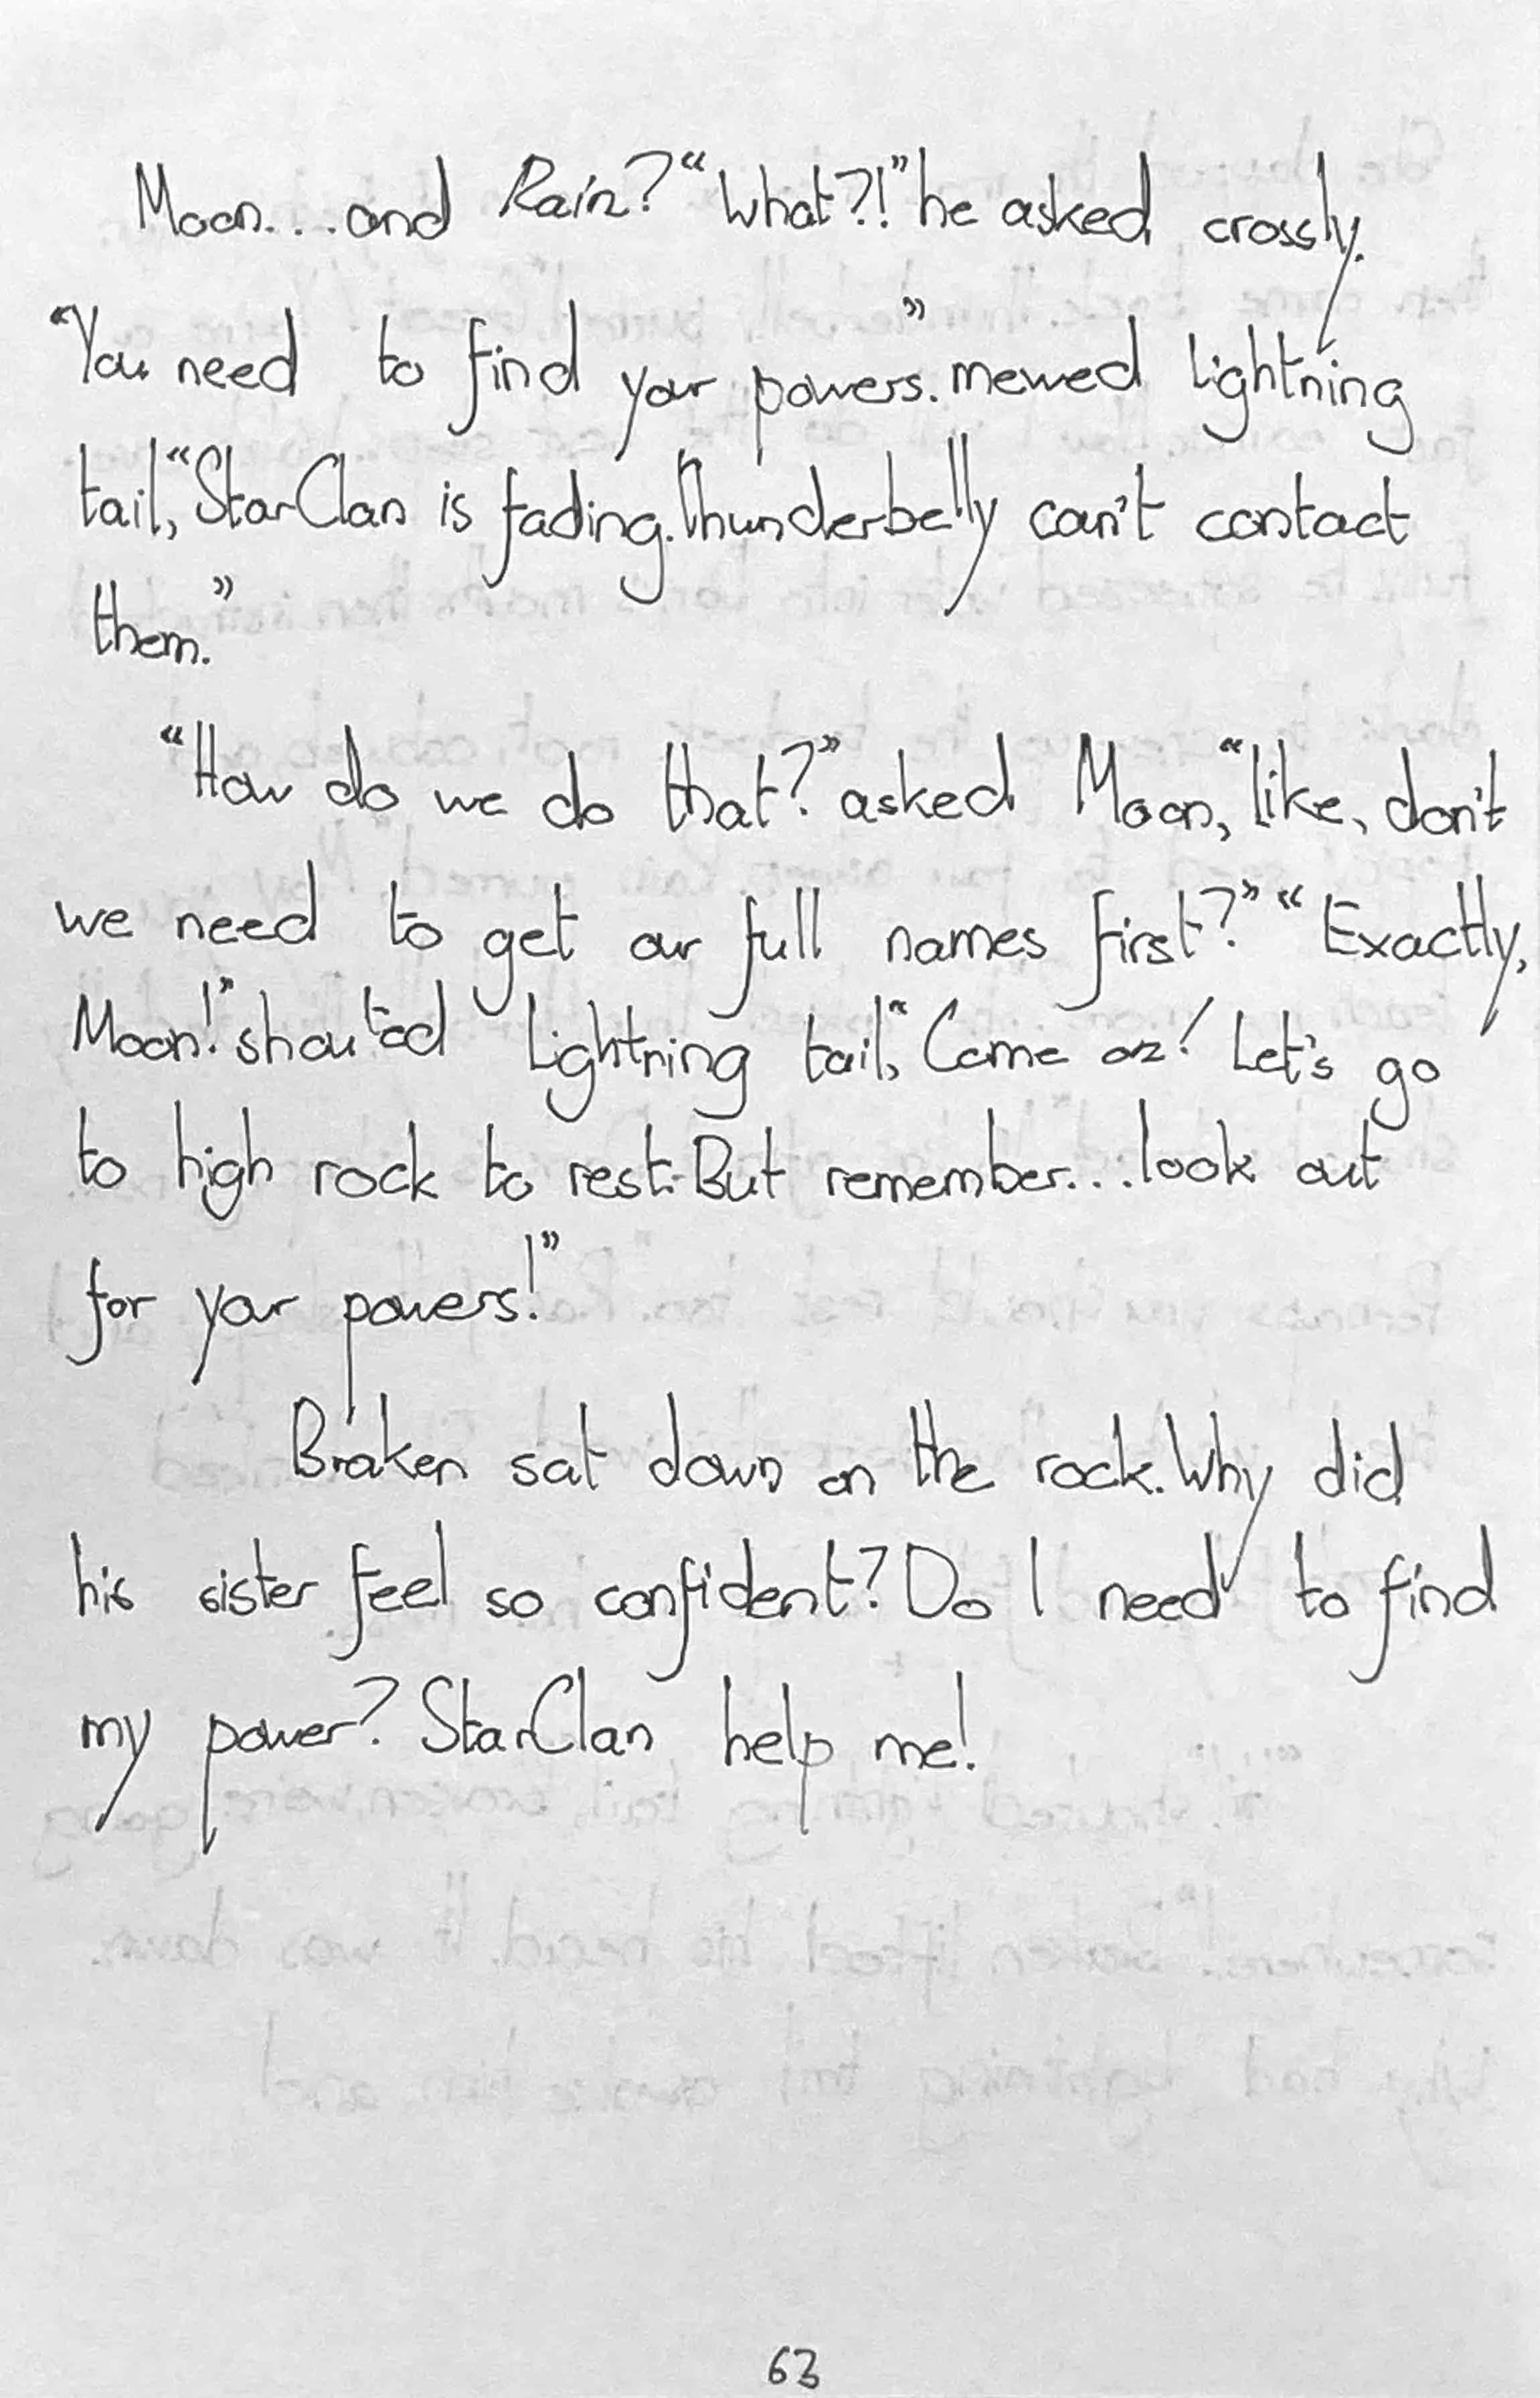 Moon...and Rain? “What?!” he asked crossly.
“You need to find your powers.” mewed Lightning
tail, “StarClan is fading. Thunderbelly can't contact
them.”
“How do we do that?” asked Moon, “like, don't
we need to get our full names first?” “Exactly,
Moon!” shouted Lightning tail, “Come on! Let's go
to high rock to rest. But remember...look out
for your powers!”
Braken sat down on the rock. Why did
his sister feel so confident? Do I need to find
my power? StarClan help me!
63